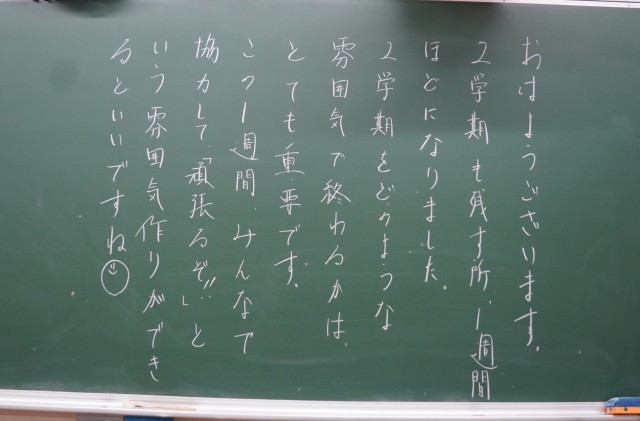 おはようございます。
2学期も残す所、1週間
ほどになりました。
2学期をどのような
雰囲気で終わるかは、
とても重要です。
この1週間、みんなで
協力して「頑張るぞ!!」と
いう雰囲気作りができ
るといいですね